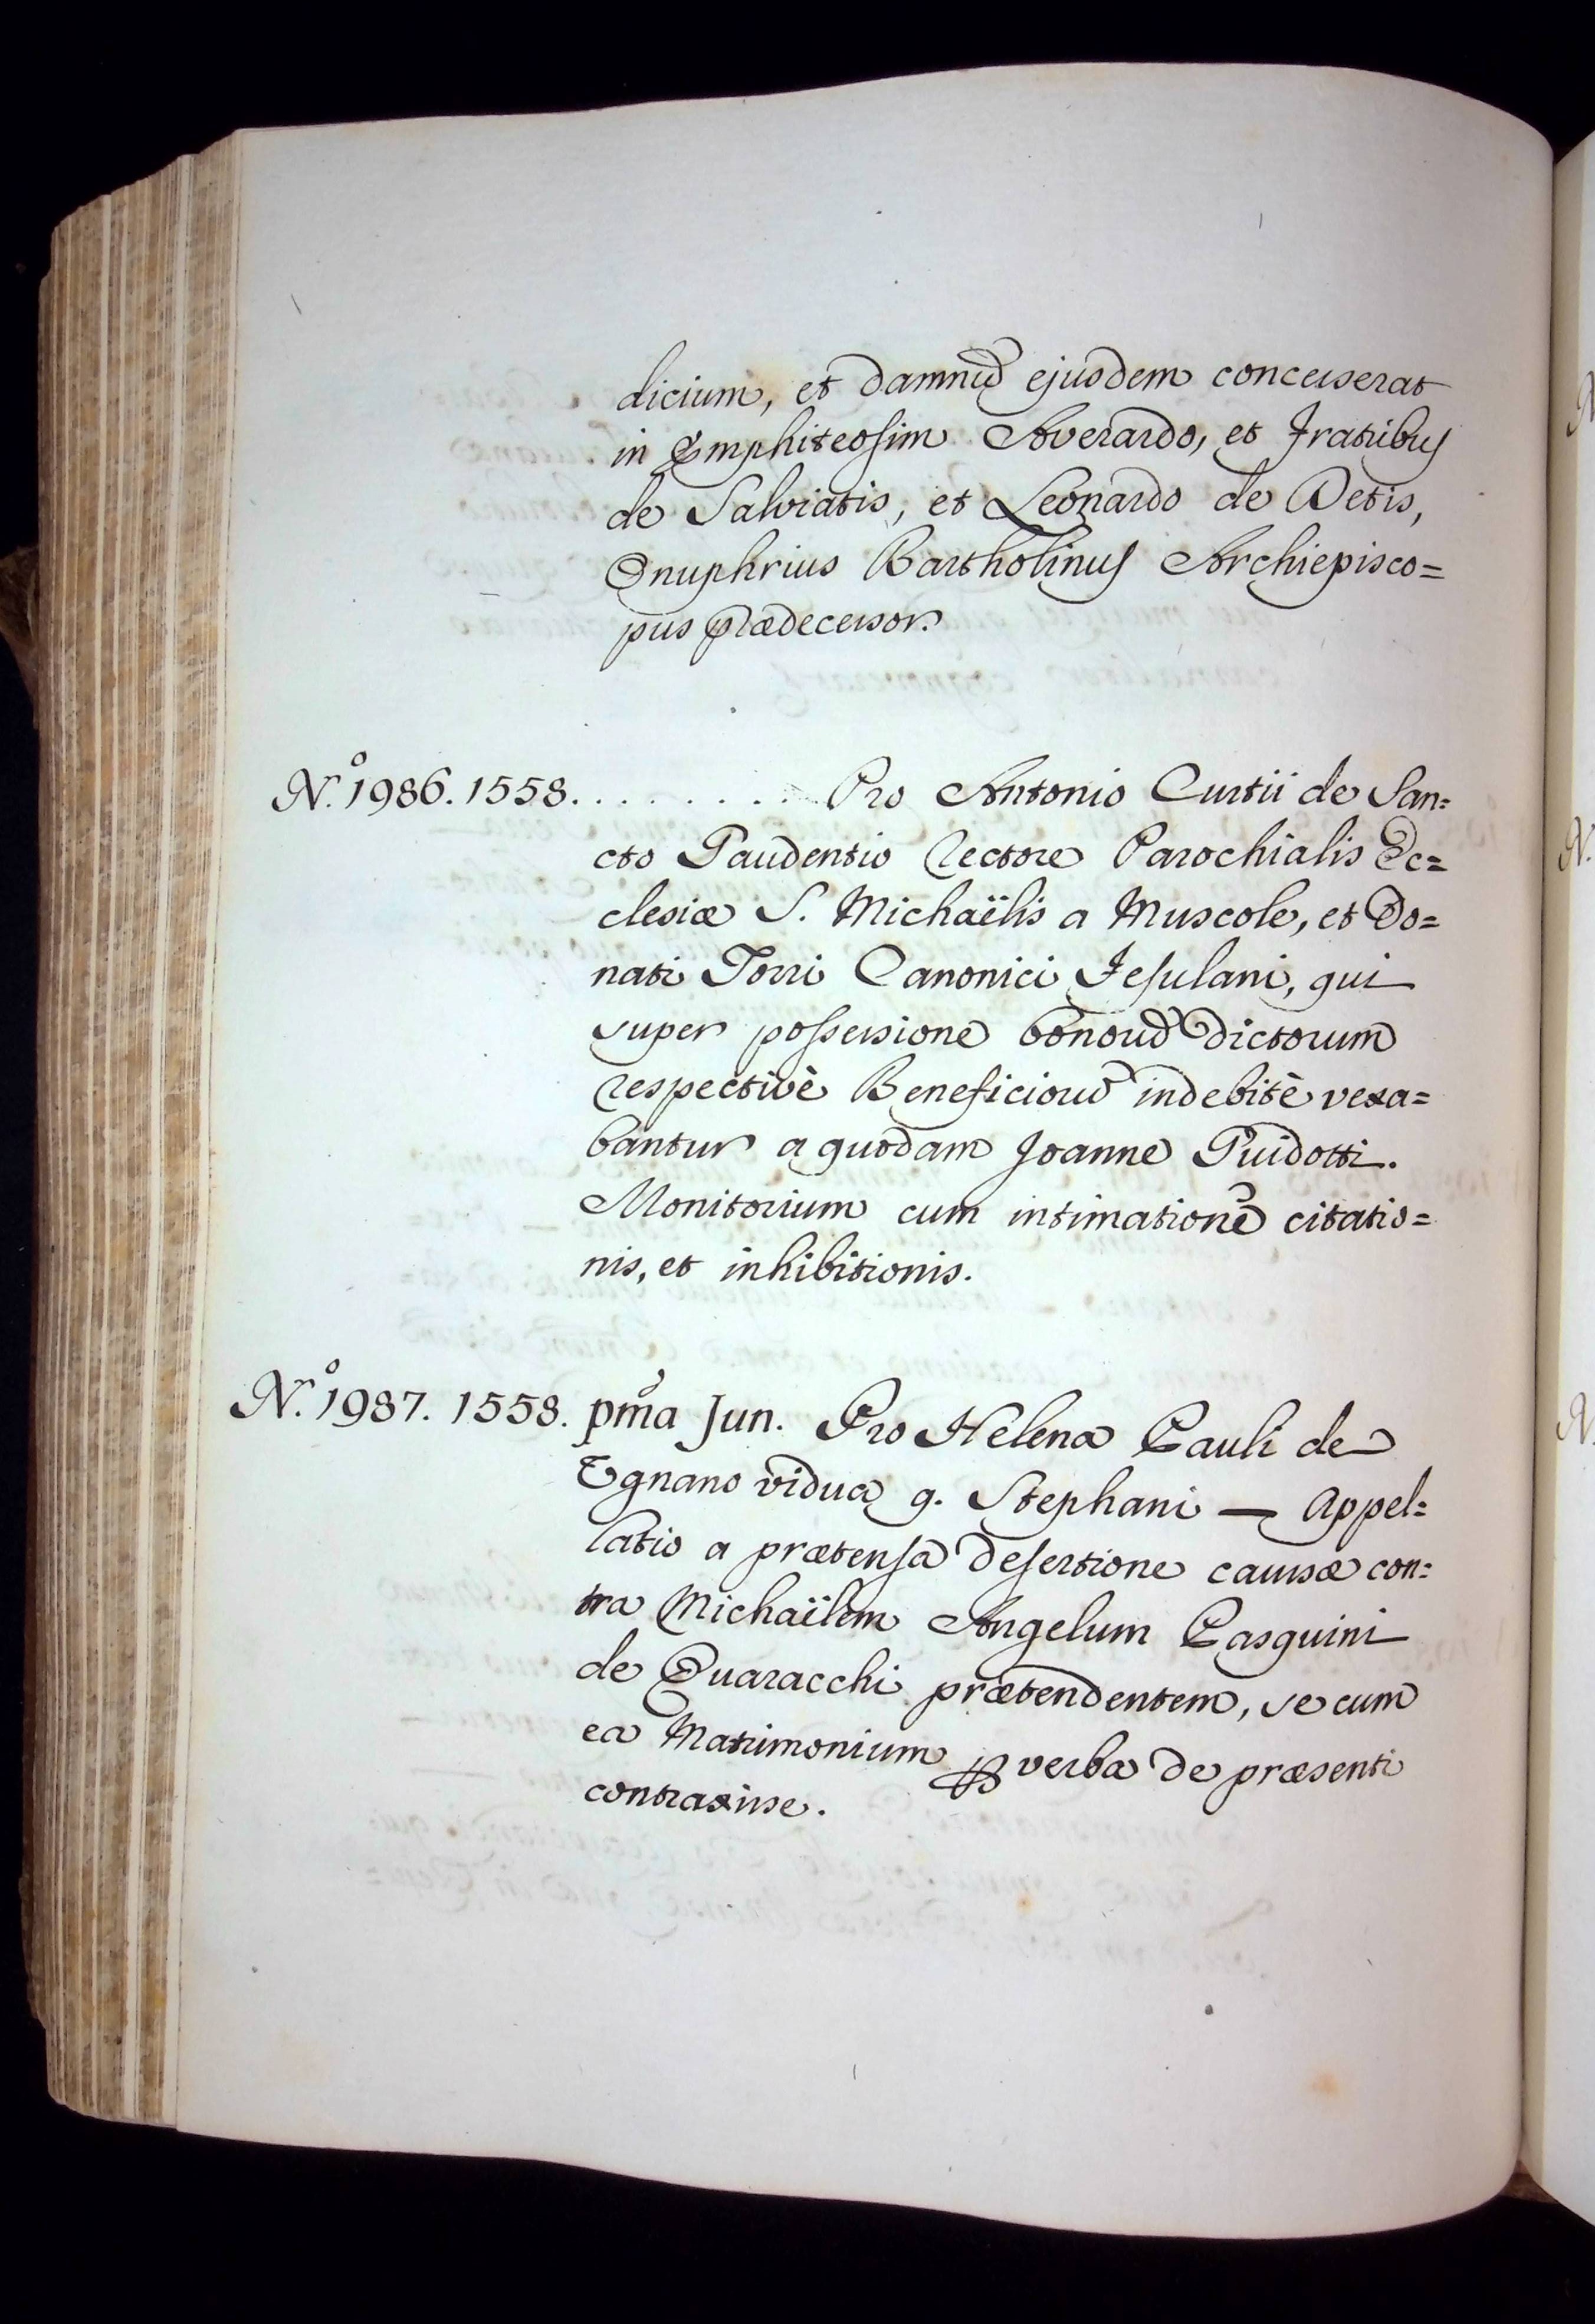 dicium, et damnũ ejusdem concesserat
in Emphiteosim Averardo, et Fratribus
de Salviatis, et Leonardo de Detis,
Onuphrius Bartholinus Archiepisco=
pus prædecessor.
N.º 1986. 1558. . . . . . . . . Pro Antonio Curtii de San=
cto Gaudentio Rectore Parochialis Ec=
clesiæ S. Michaëlis a Muscole, et Do=
nati Torri Canonici Fesulani, qui
super possessione bonorũ dictorum
respectivè Beneficiorũ indebitè vexa=
bantur a quodam Joanne Guidotti.
Monitorium cum intimatione citatio=
nis, et inhibitionis.
N.º 1987. 1558. pm̃a Jun. Pro Helena Pauli de
Ognano vidua q. Stephani — Appel=
latio a prætensa desertione causæ con=
tra Michaëlem Angelum Pasquini
de Quaracchi prætendentem, se cum
ea Matrimonium ꝑ verba de præsenti
contraxisse.